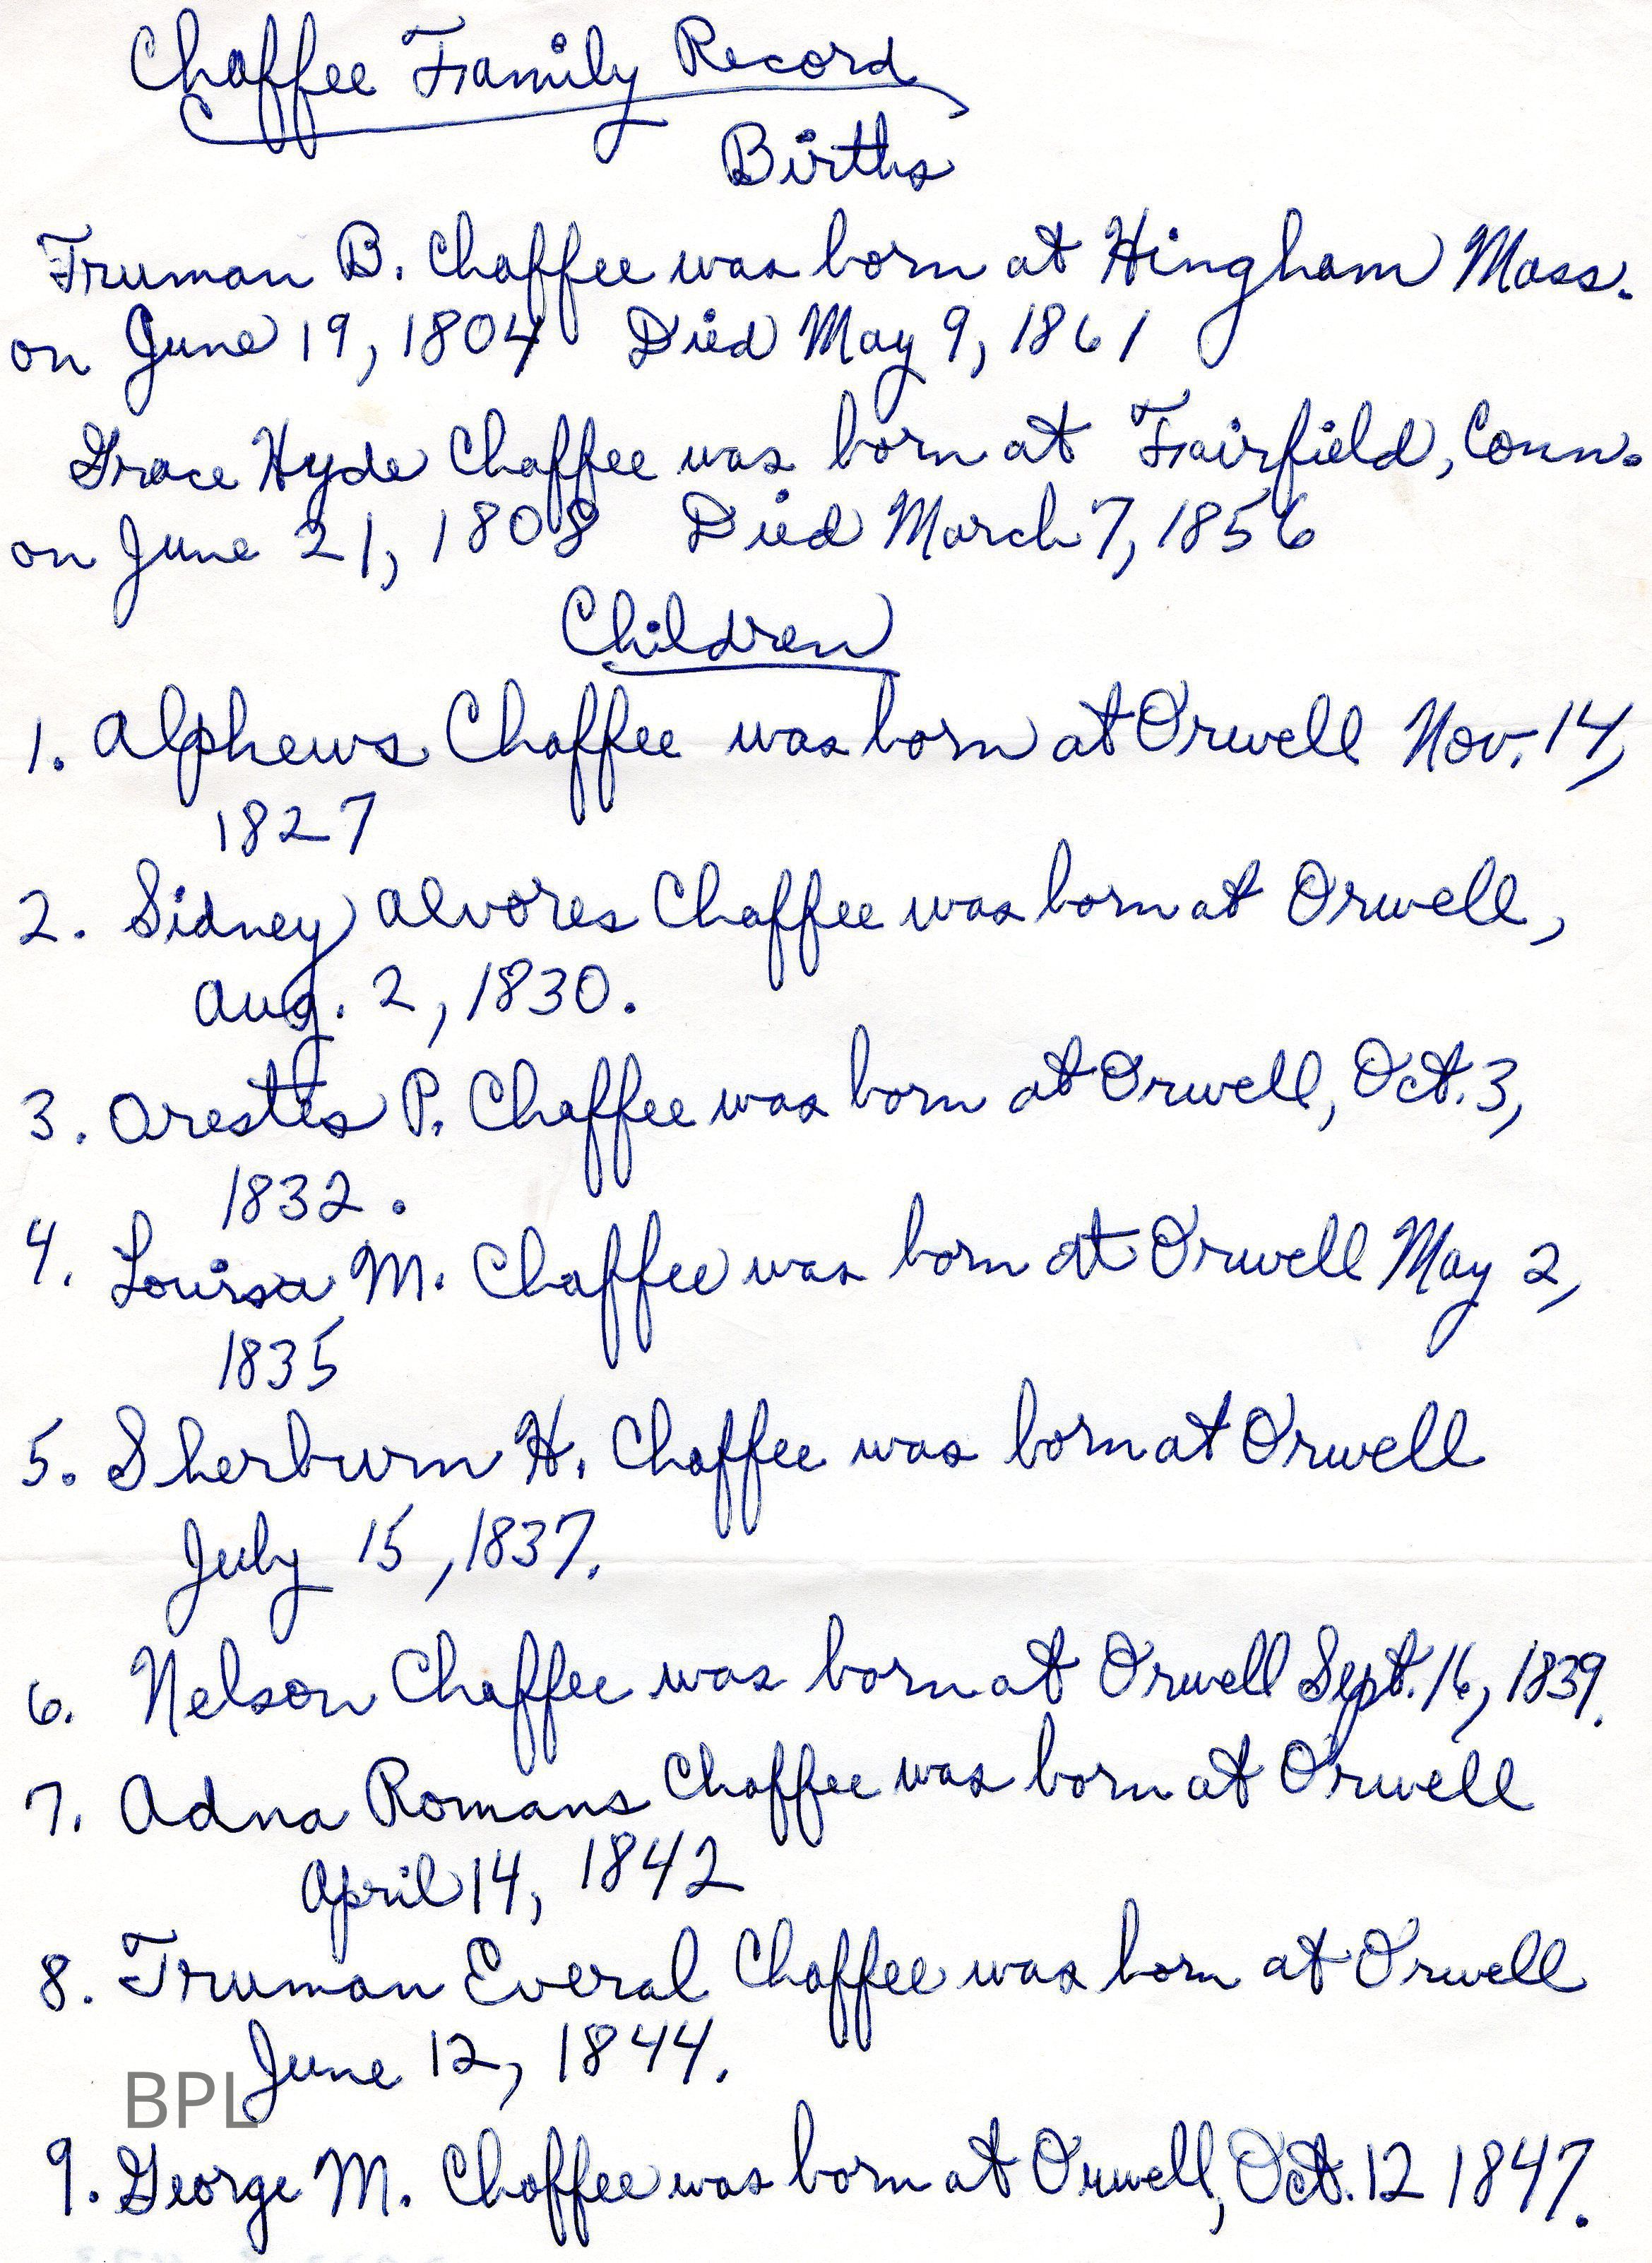 Chaffee Family Record
Births
Truman B. Chaffee was born at Hingham Mass.
on June 19, 1804 Died May 9, 1861
Grace Hyde Chaffee was born at Fairfield, Conn.
on June 21, 1808 Died March 7, 1856
Children
1. Alphews Chaffee was born at Orwell Nov. 14,
1827
2. Sidney Alvores Chaffee was born at Orwell,
Aug. 2, 1830.
3. Orestes P. Chaffee was born at Orwell, Oct. 3,
1832.
4. Louisa M. Chaffee was born at Orwell May 2,
1835
5. Sherburn H. Chaffee was born at Orwell
July 15, 1837.
6. Nelson Chaffee was born at Orwell Sept. 16, 1839.
7. Adna Romans Chaffee was born at Orwell
April 14, 1842
8. Truman Everal Chaffee was born at Orwell
June 12, 1844.
BPL
9. George M. Chaffee was born at Orwell, Oct. 12 1847.